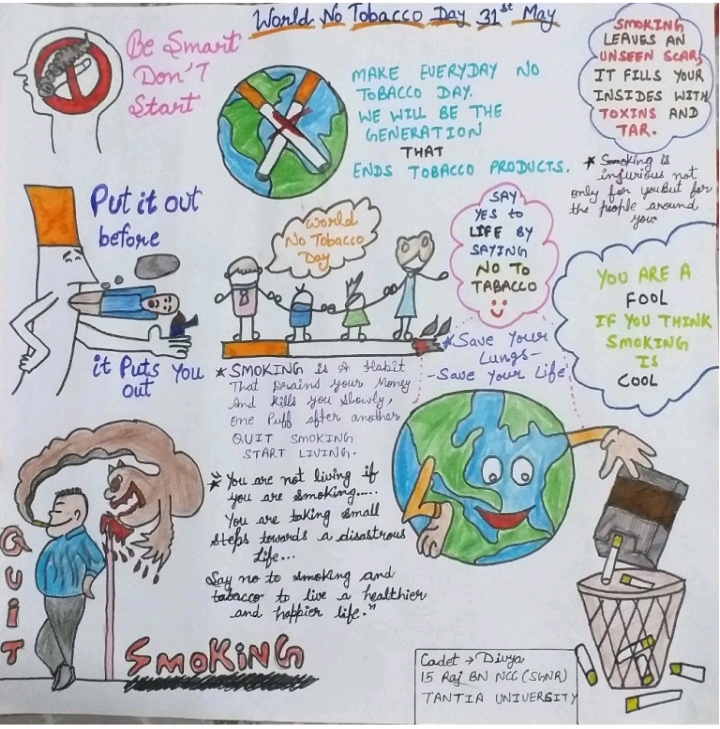 World No Tobacco Day 31st May
Be Smart
Don'T
Start
MAKE EVERYDAY NO
TOBACCO DAY.
WE WILL BE THE
GENERATION
THAT
ENDS TOBACCO PRODUCTS.
SMOKING
LEAVES AN
UNSEEN SCAR,
IT FILLS YOUR
INSIDES WITH
TOXINS AND
TAR.
* Smoking is
injurious not
only for you But for
the people around
you
Put it out
before
it Puts You
out
World
No Tobacco
Day
SAY
YES to
LIFE BY
SAYING
NO TO
TABACCO
YOU ARE A
FOOL
IF YOU THINK
SMOKING
IS
COOL
* Save Your
Lungs-
-Save Your Life
* SMOKING is A Habit
That Drains Your Money
And Kills You Slowly,
one Puff after another
QUIT SMOKING
START LIVING.
* "You are not living if
you are smoking....
You are taking small
steps towards a disastrous
life...
Say no to smoking and
tabacco to live a healthier
and happier life."
QUIT
SMOKING
Cadet → Divya
15 Raj BN NCC (SGNR)
TANTIA UNIVERSITY